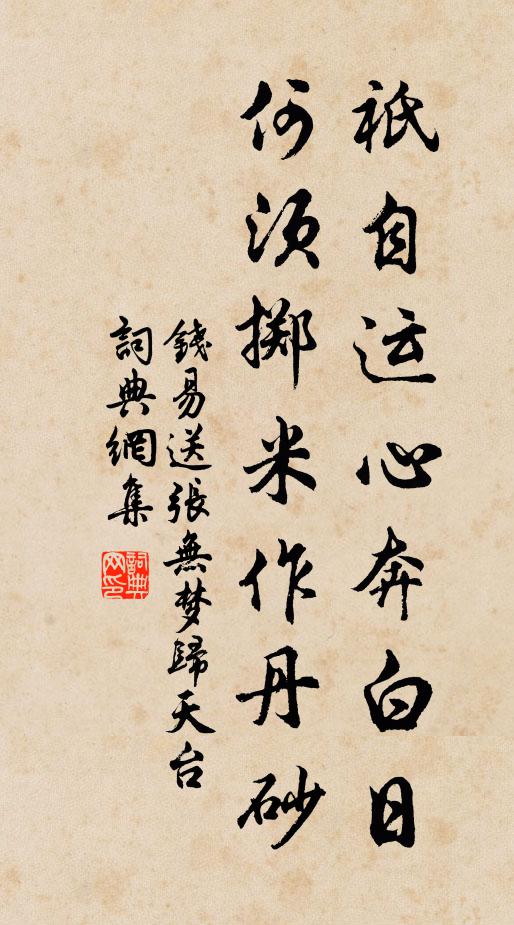 祇自运心奔白日
何须掷米作丹砂
錢易送張無梦歸天台
詞典網集
詞典网印